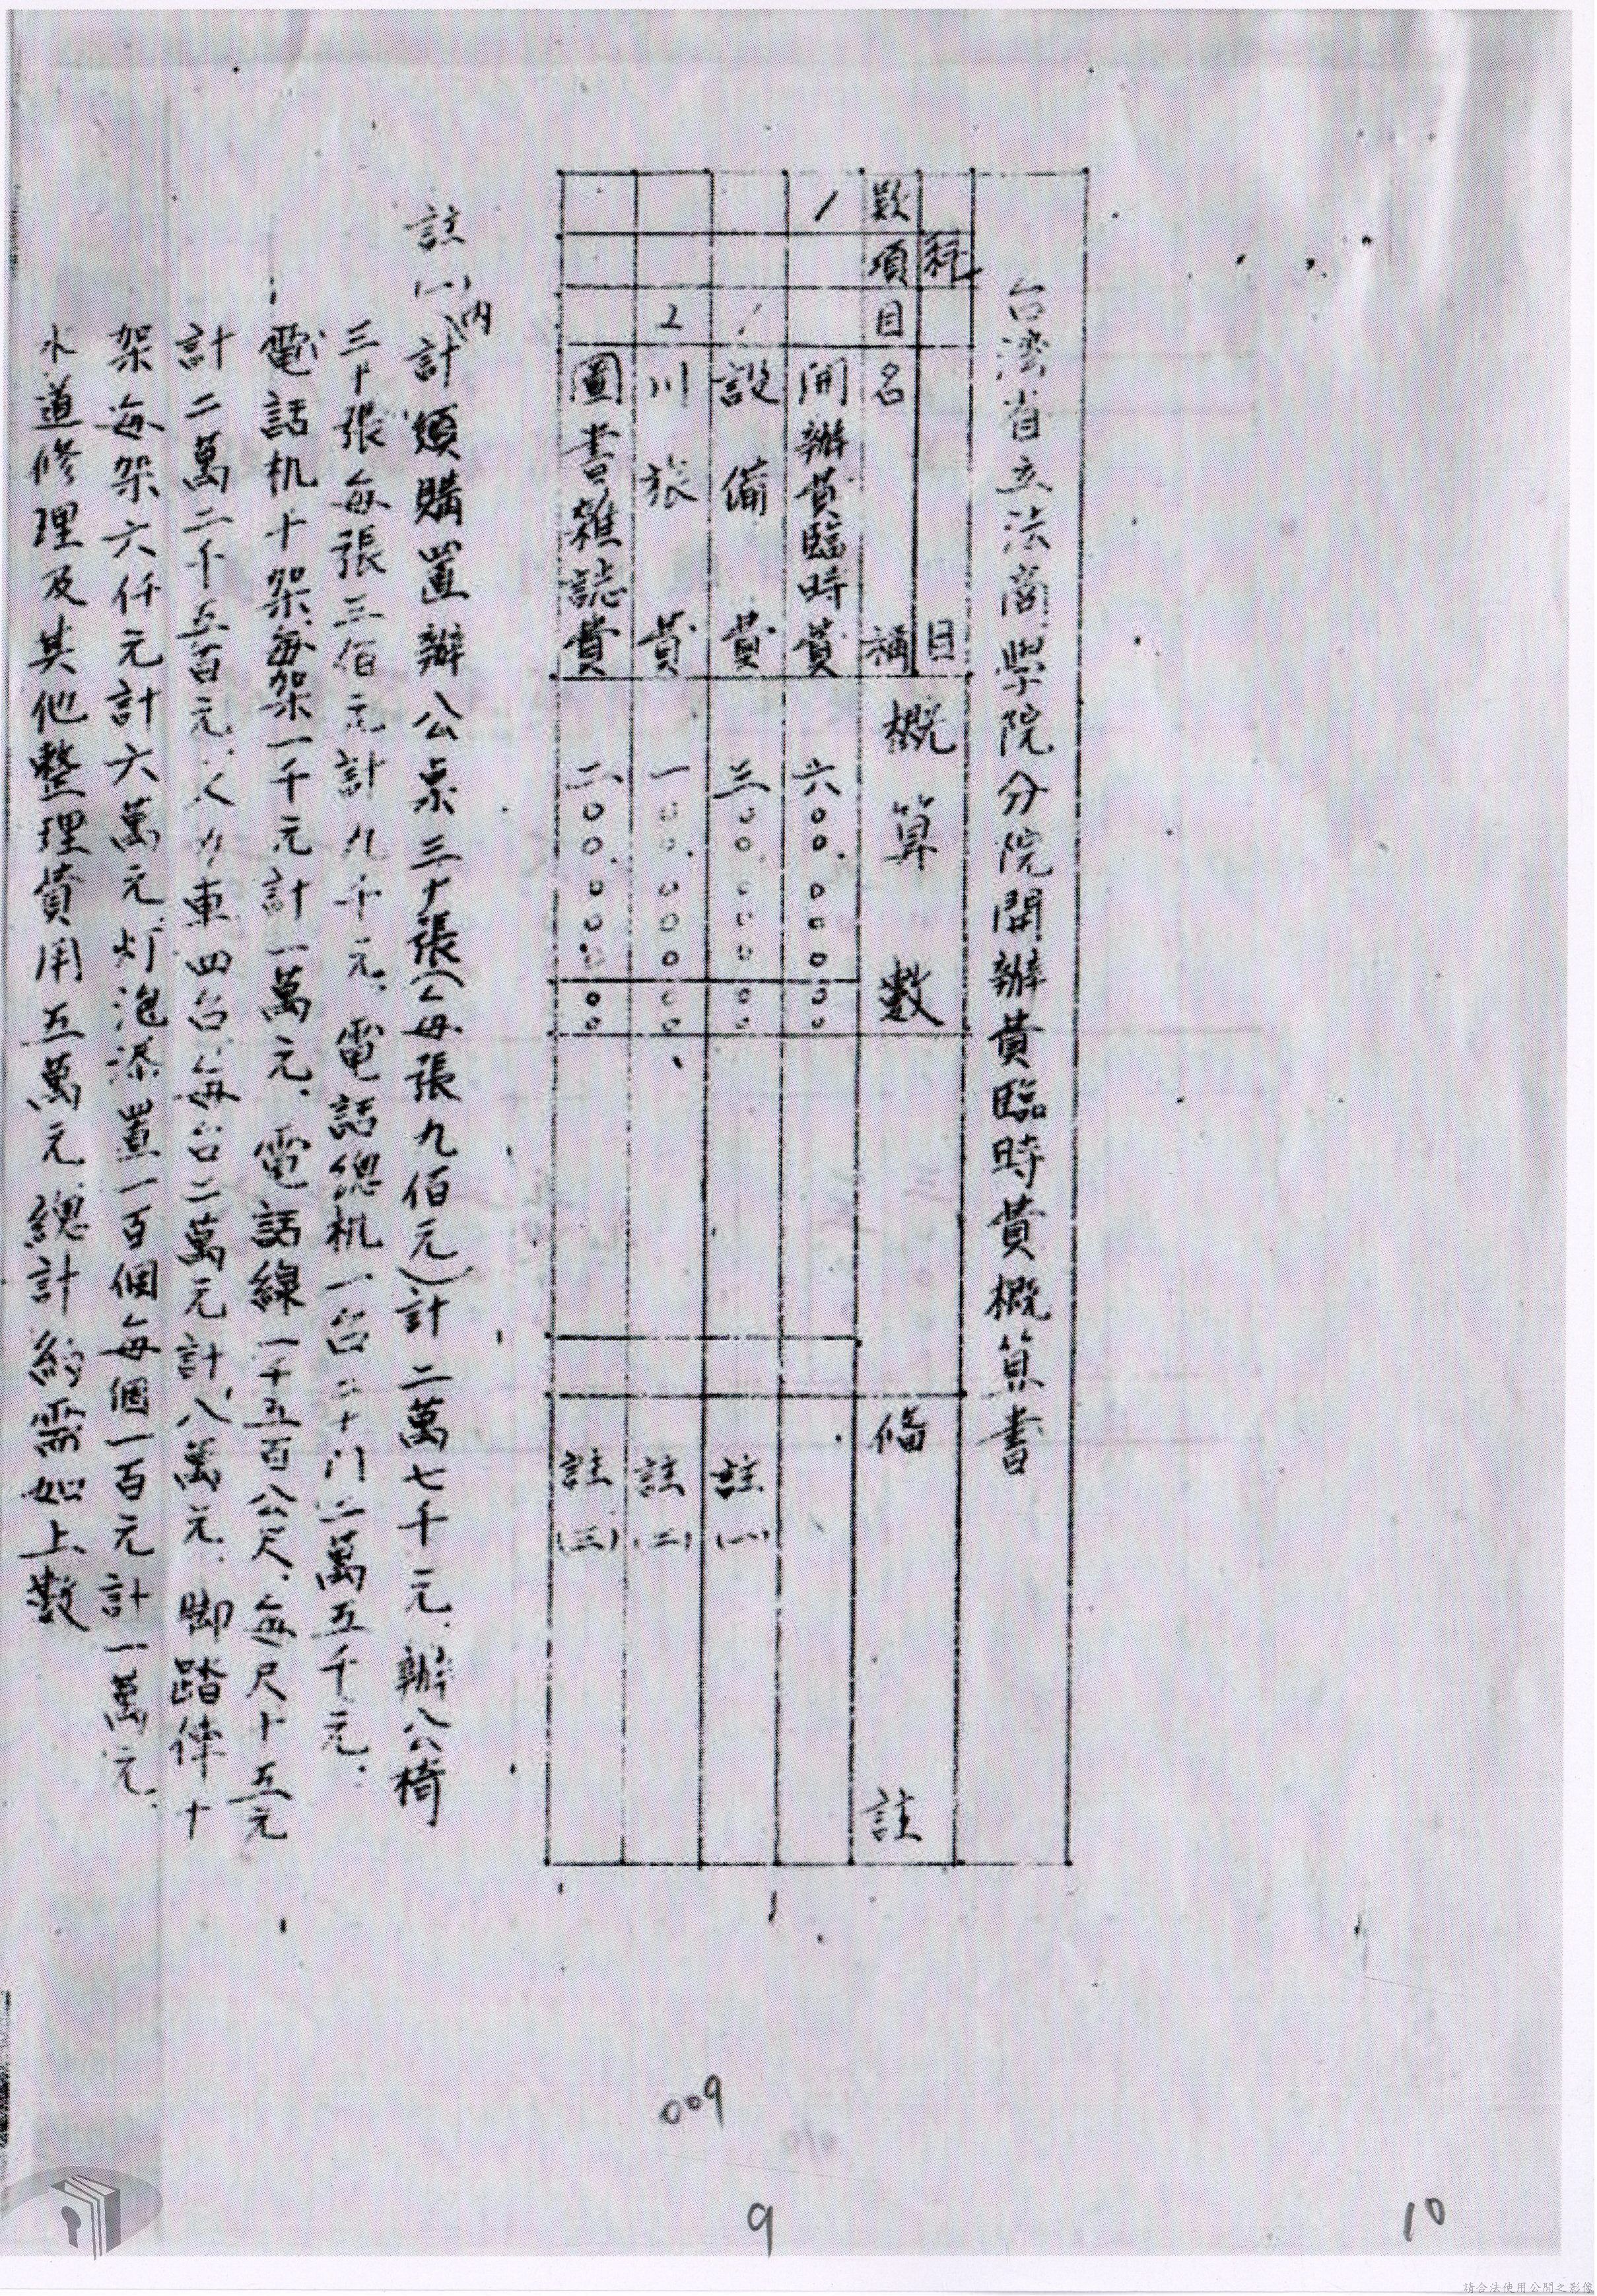 台湾省立法商學院分院開辦費臨時費概算書
科目
款項目名稱 概算數 備註
1 開辦費臨時費 六〇〇.〇〇〇〇〇
1 設備費 三〇〇.〇〇〇〇〇 註(一)
2 川旅費 一〇〇.〇〇〇〇〇 註(二)
圖書雜誌費 二〇〇.〇〇〇〇〇 註(三)
註(一)內計須購置辦公桌三十張(每張九佰元)計二萬七千元.辦公椅
三十張每張三佰元計九千元.電話總机一台二十门二萬五千元.
電話机十架每架一千元計一萬元.電話線一千五百公尺.每尺十五元
計二萬二千五百元.人力車四台每台二萬元計八萬元.脚踏車十
架每架六仟元計六萬元.灯泡添置一百個每個一百元計一萬元.
水道修理及其他整理費用五萬元總計約需如上數
009
9
10
請合法使用公開之影像